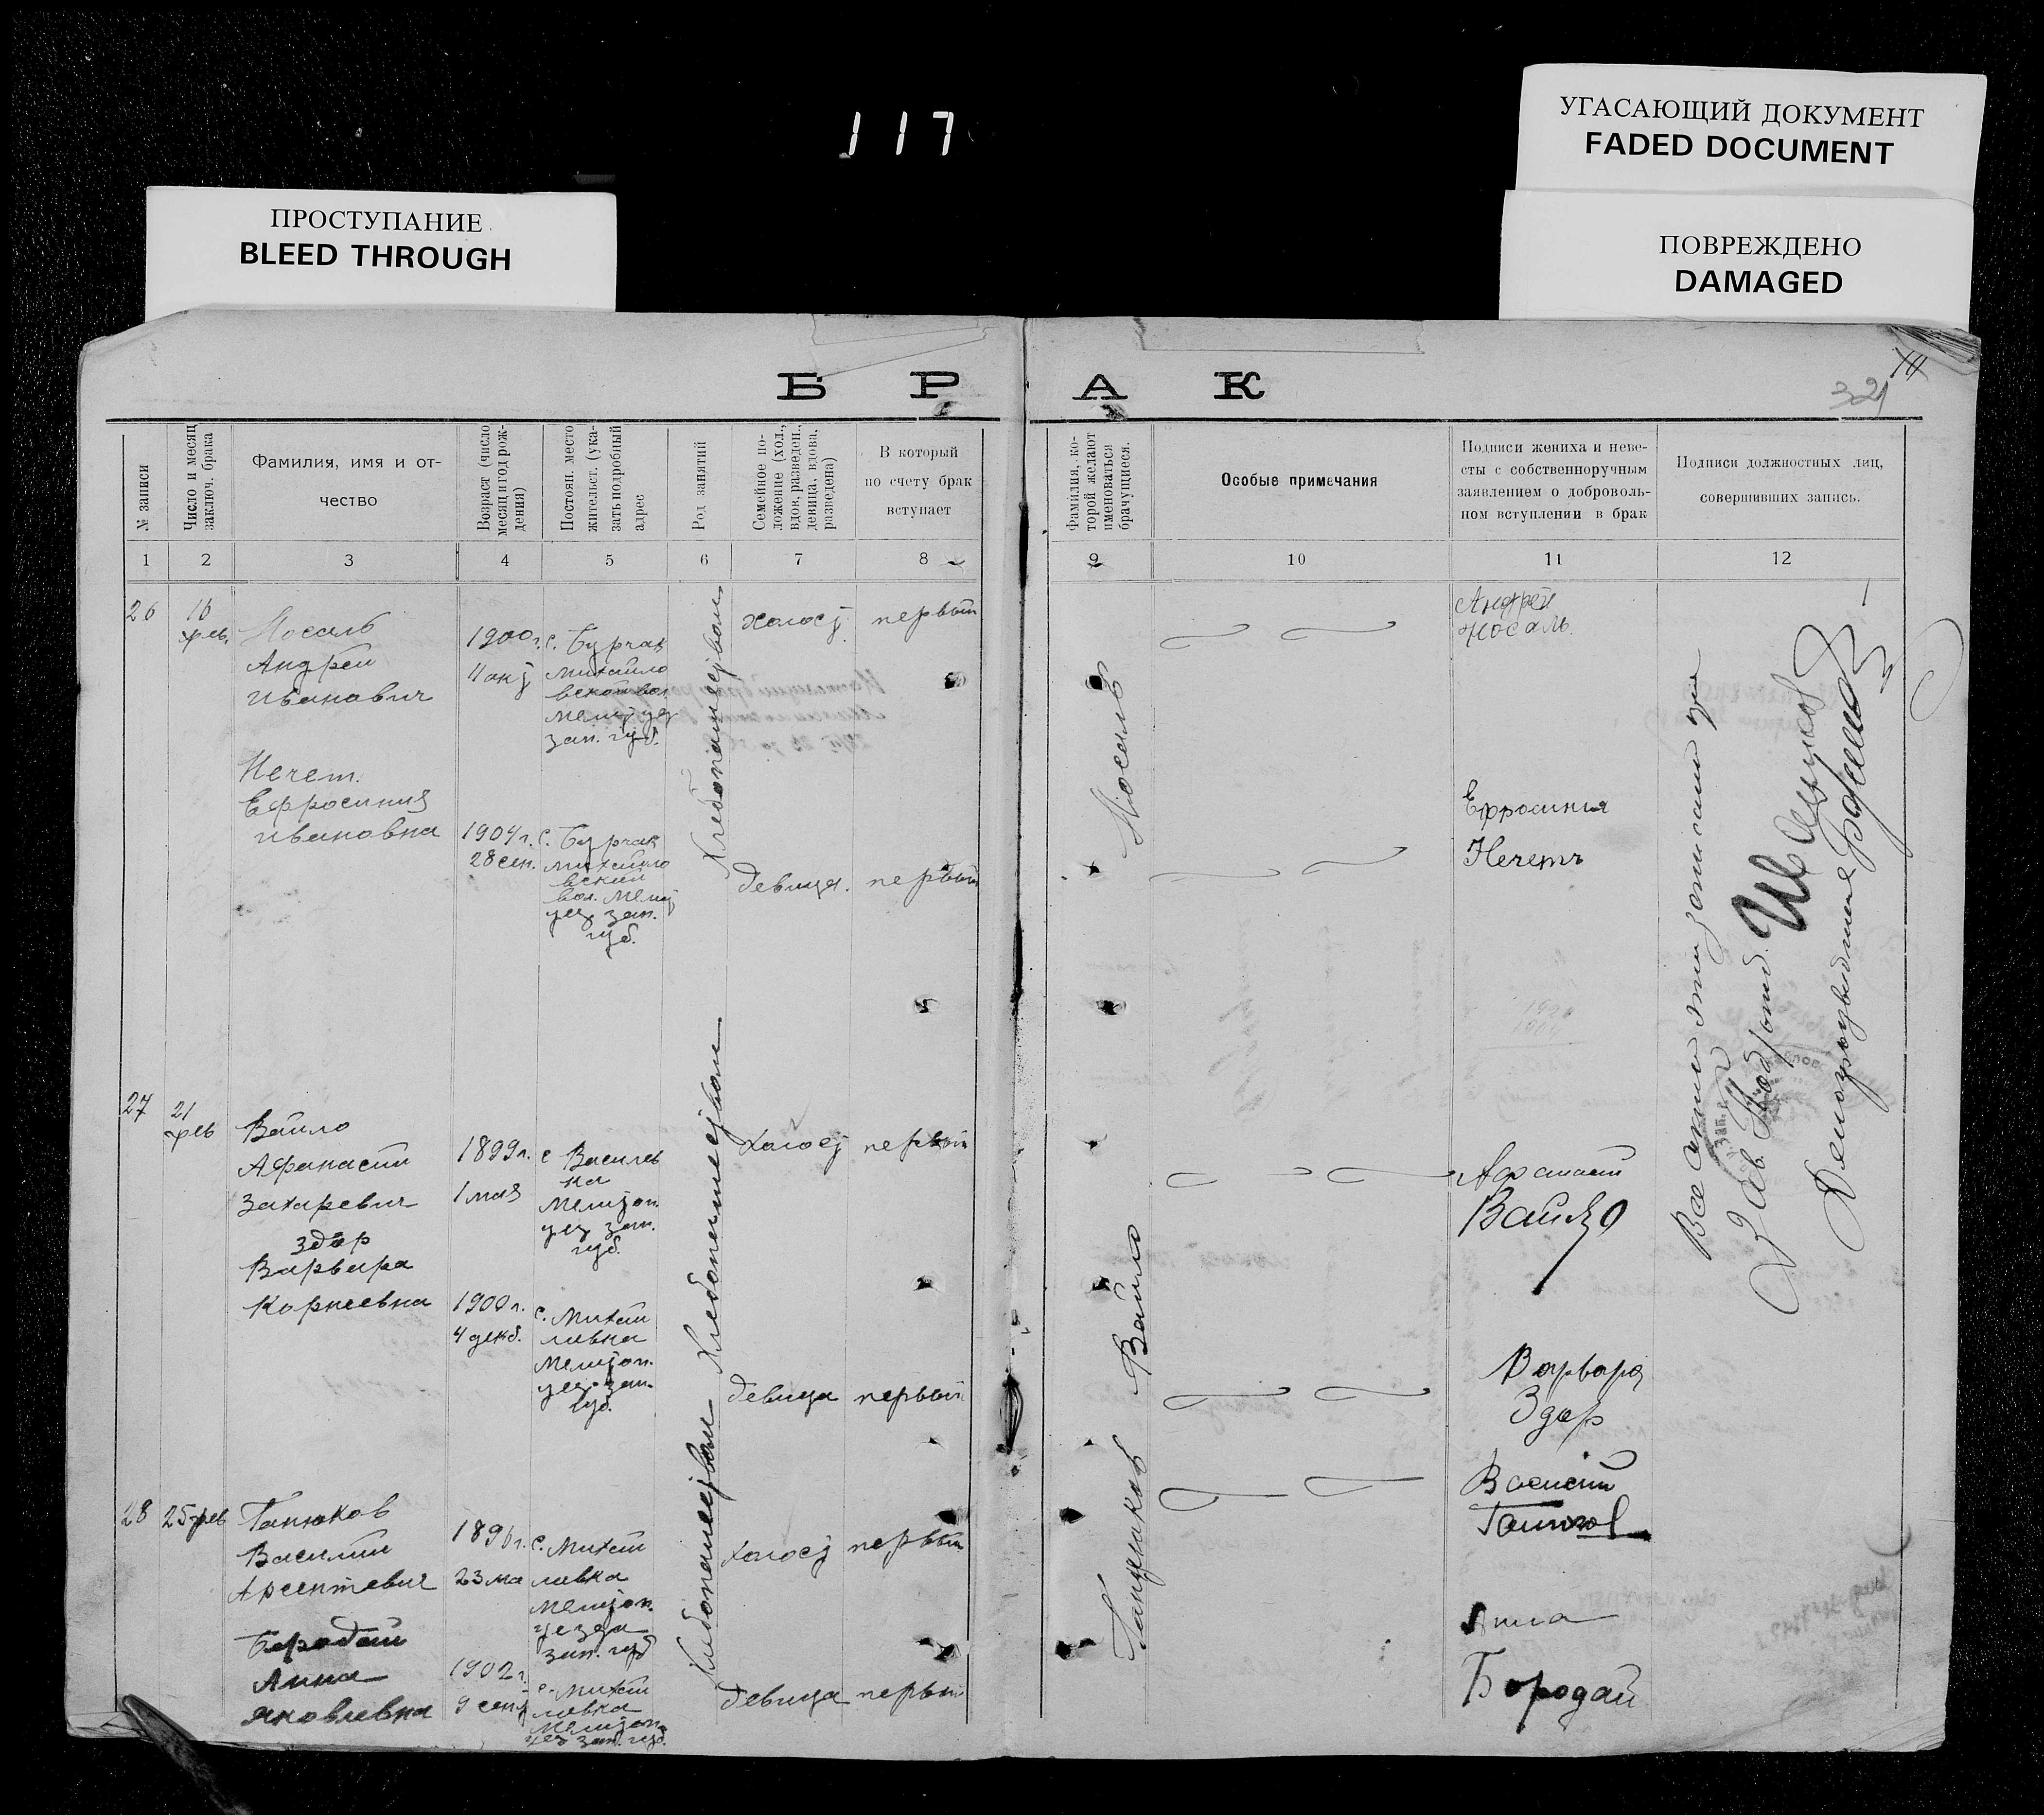 117
УГАСАЮЩИЙ ДОКУМЕНТ
FADED DOCUMENT
ПРОСТУПАНИЕ
BLEED THROUGH
ПОВРЕЖДЕНО
DAMAGED
321
БРАК
№ записи
Число и месяц
заключ. брака
Фамилия, имя и от-
чество
Возраст (число
месяц и год рож-
дения)
Постоян. место
жительст. (ука-
зать подробный
адрес
Род занятий
Семейное по-
ложение (хол.,
вдов. разведен.,
девица, вдова,
разведена)
В который
по счету брак
вступает
Фамилия, ко-
торой желают
именоваться
брачущиеся.
Особые примечания
Подписи жениха и неве-
сты с собственноручным
заявлением о доброволь-
ном вступлении в брак
Подписи должностных лиц,
совершивших запись.
1 2 3 4 5 6 7 8 9 10 11 12
26
16
фев.
Носаль
Андрей
Иванович
1900 г.
с. Бурчак
Михайло
вской вол.
Мелит уез
зап. губ.
Хлебопашество
холост
первый
Носаль
Андрей
Носаль.
Нечет.
Ефросиния
Ивановна
1904 г.
28 сен.
с. Бурчак
Михайло
вский
вол. Мелит
уез зап.
губ.
девица.
первый
Ефросиния
Нечетъ
27
21
фев
Вайло
Афанасий
Захаревич
1899 г.
1 мая
с Василев
ка
Мелитоп.
уез зап.
губ.
Хлебопашество
холост
первый
Вайло
Афанасий
Вайло
Здор
Варвара
Корнеевна
1900 г.
4 декб.
с. Михай
ловка
Мелитоп.
уез. зап.
губ.
девица
первый
Варвара
Здор
28
25 фев
Ганюков
Василий
Арсентевич
1896 г.
23 ма
с. Михай
ловка
Мелитоп.
уезда
зап. губ
Хлебопашество
холост
первый
Василий
Бородай
Анна
Яковлевна
1902 г.
9 сент
с. Михай
ловка
Мелитоп.
уез зап. губ.
девица
первый
Анна
Бородай
Все акты эти записаны
Зав. Подотд.
Делопроизводитель